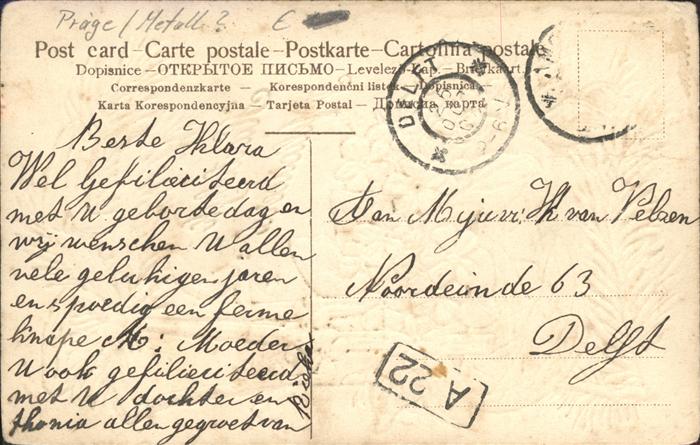 Präge / Metall ? E
Post card – Carte postale – Postkarte – Cartolina postale
Dopisnice – ОТКРЫТОЕ ПИСЬМО – Levelező-Lap. – Briefkaart.
Correspondenzkarte – Korespondenčni listek – Dopisnica
Karta Korespondencyjna – Tarjeta Postal – Дописна карта
DELFT
Beste Klara
Wel Gefiliciteerd
met U geboortedag en
wij wenschen U allen
vele gelukkigen jaren
en spoedig een ferme
knape M: Moeder
U ook gefiliciteerd
met U dochter en
thonia allen gegroet van
Aan Mejuvr: K van Velzen
Noordeinde 63
Delft
A 22